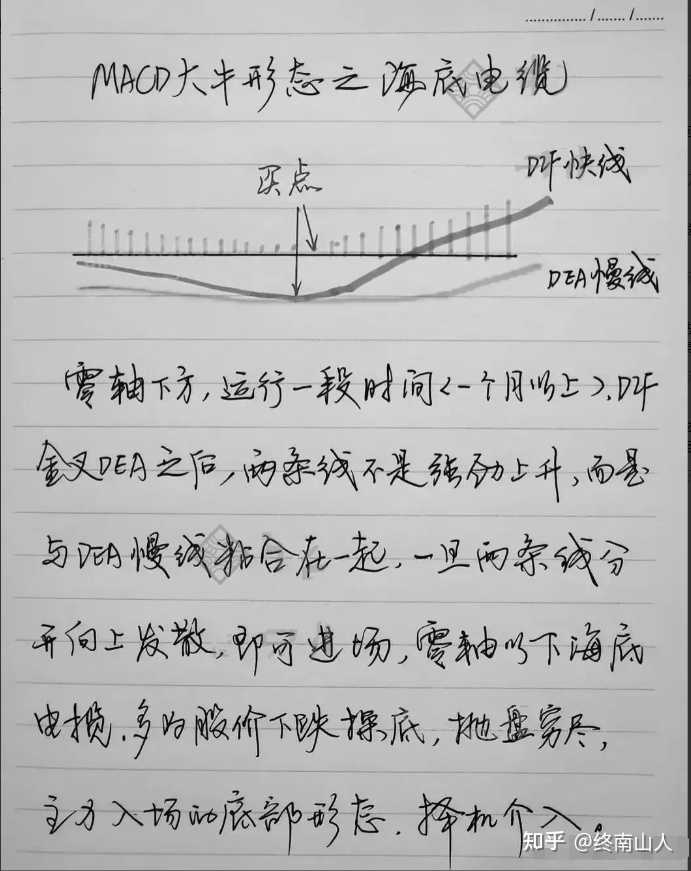 ............... / ....... / .......
MACD大牛形态之海底电缆
买点
DIF快线
DEA慢线
零轴下方，运行一段时间<一个月以上>，DIF
金叉DEA之后，两条线不是强劲上升，而是
与DEA慢线粘合在一起，一旦两条线分
开向上发散，即可进场，零轴以下海底
电揽，多为股价下跌探底，抛盘穷尽，
主力入场的底部形态，择机介入。
知乎 @终南山人